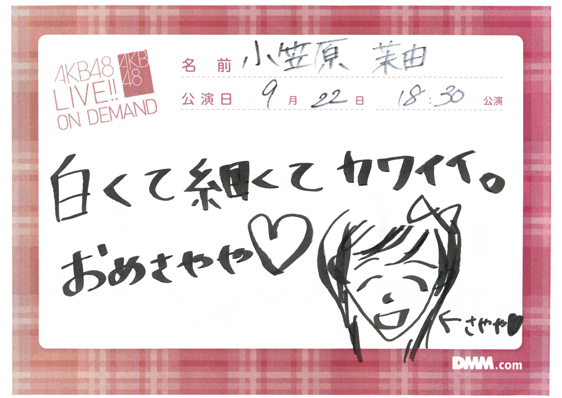 AKB48
LIVE!!
ON DEMAND
AKB
48
名前 小笠原 茉由
公演日 9月 22日 18:30 公演
白くて細くてカワイイ。
おめさやや♡
←さやや♥
DMM.com